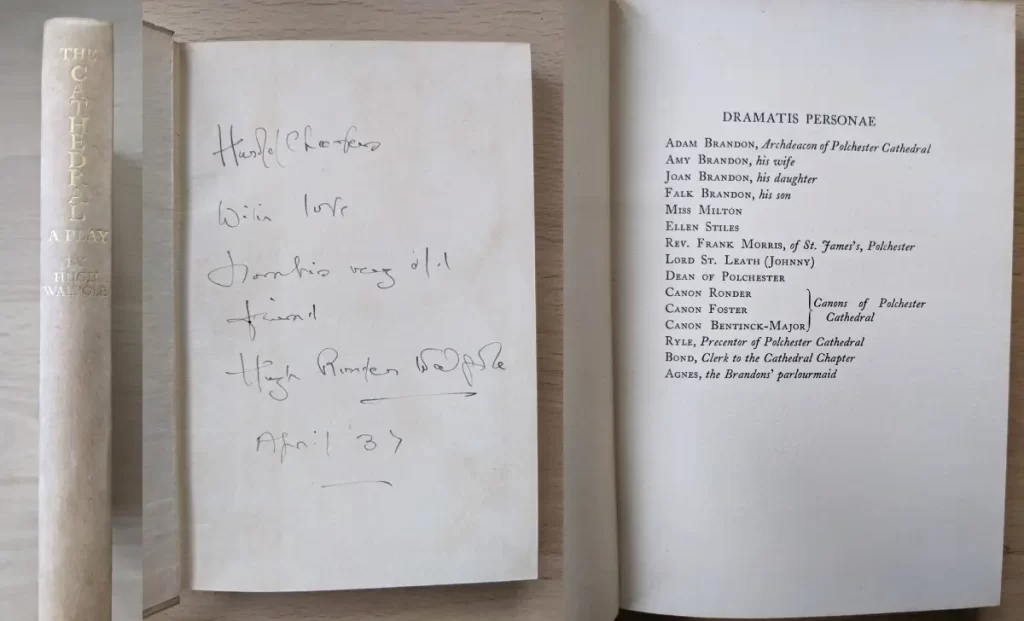 THE
CATHEDRAL
A PLAY
BY
HUGH
WALPOLE
Harold
With love
from his very old
friend
Hugh Ronder Walpole
April '37
DRAMATIS PERSONAE
ADAM BRANDON, Archdeacon of Polchester Cathedral
AMY BRANDON, his wife
JOAN BRANDON, his daughter
FALK BRANDON, his son
MISS MILTON
ELLEN STILES
REV. FRANK MORRIS, of St. James's, Polchester
LORD ST. LEATH (JOHNNY)
DEAN OF POLCHESTER
CANON RONDER
CANON FOSTER
CANON BENTINCK-MAJOR
Canons of Polchester
Cathedral
RYLE, Precentor of Polchester Cathedral
BOND, Clerk to the Cathedral Chapter
AGNES, the Brandons' parlourmaid